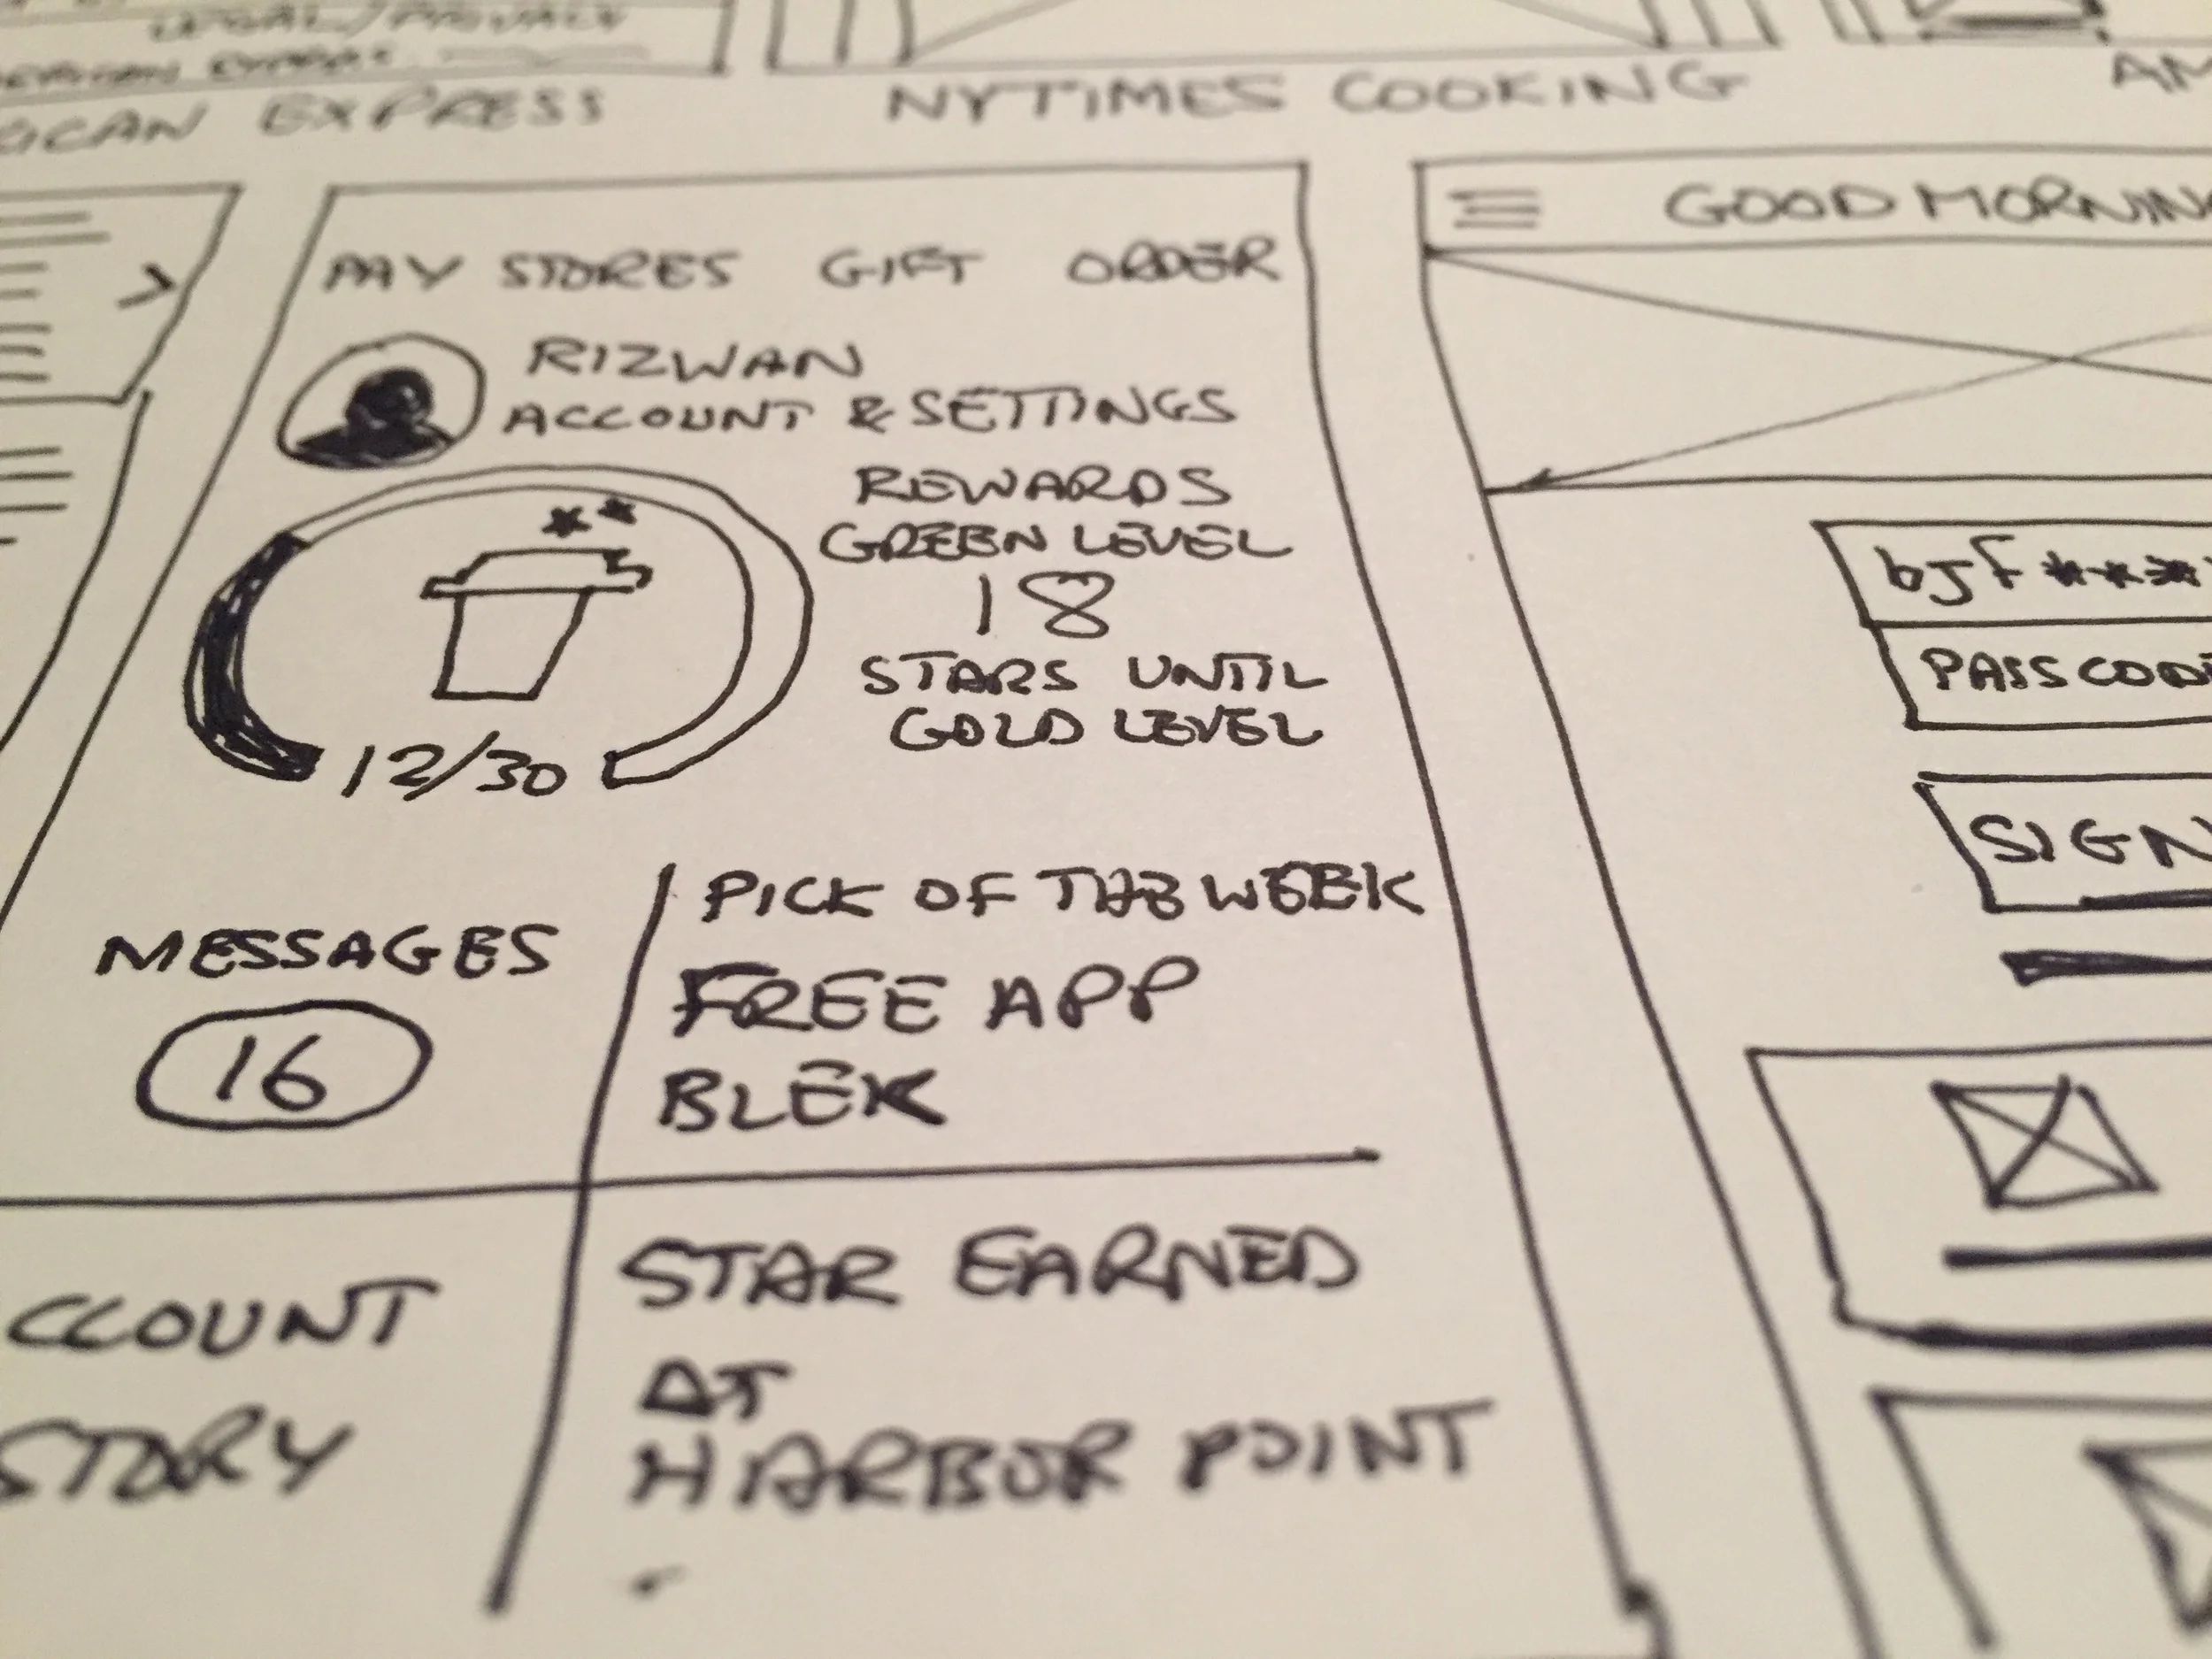 LEGAL/PRIVACY
EXPRESS
ICAN EXPRESS
NYTIMES COOKING
AM
PAY STORES GIFT ORDER
RIZWAN
ACCOUNT & SETTINGS
REWARDS
GREEN LEVEL
18
STARS UNTIL
GOLD LEVEL
12/30
MESSAGES
16
PICK OF THE WEEK
FREE APP
BLEK
CCOUNT
STORY
STAR EARNED
AT
HARBOR POINT
GOOD MORNIN
bjf****
PASSCOD
SIGN